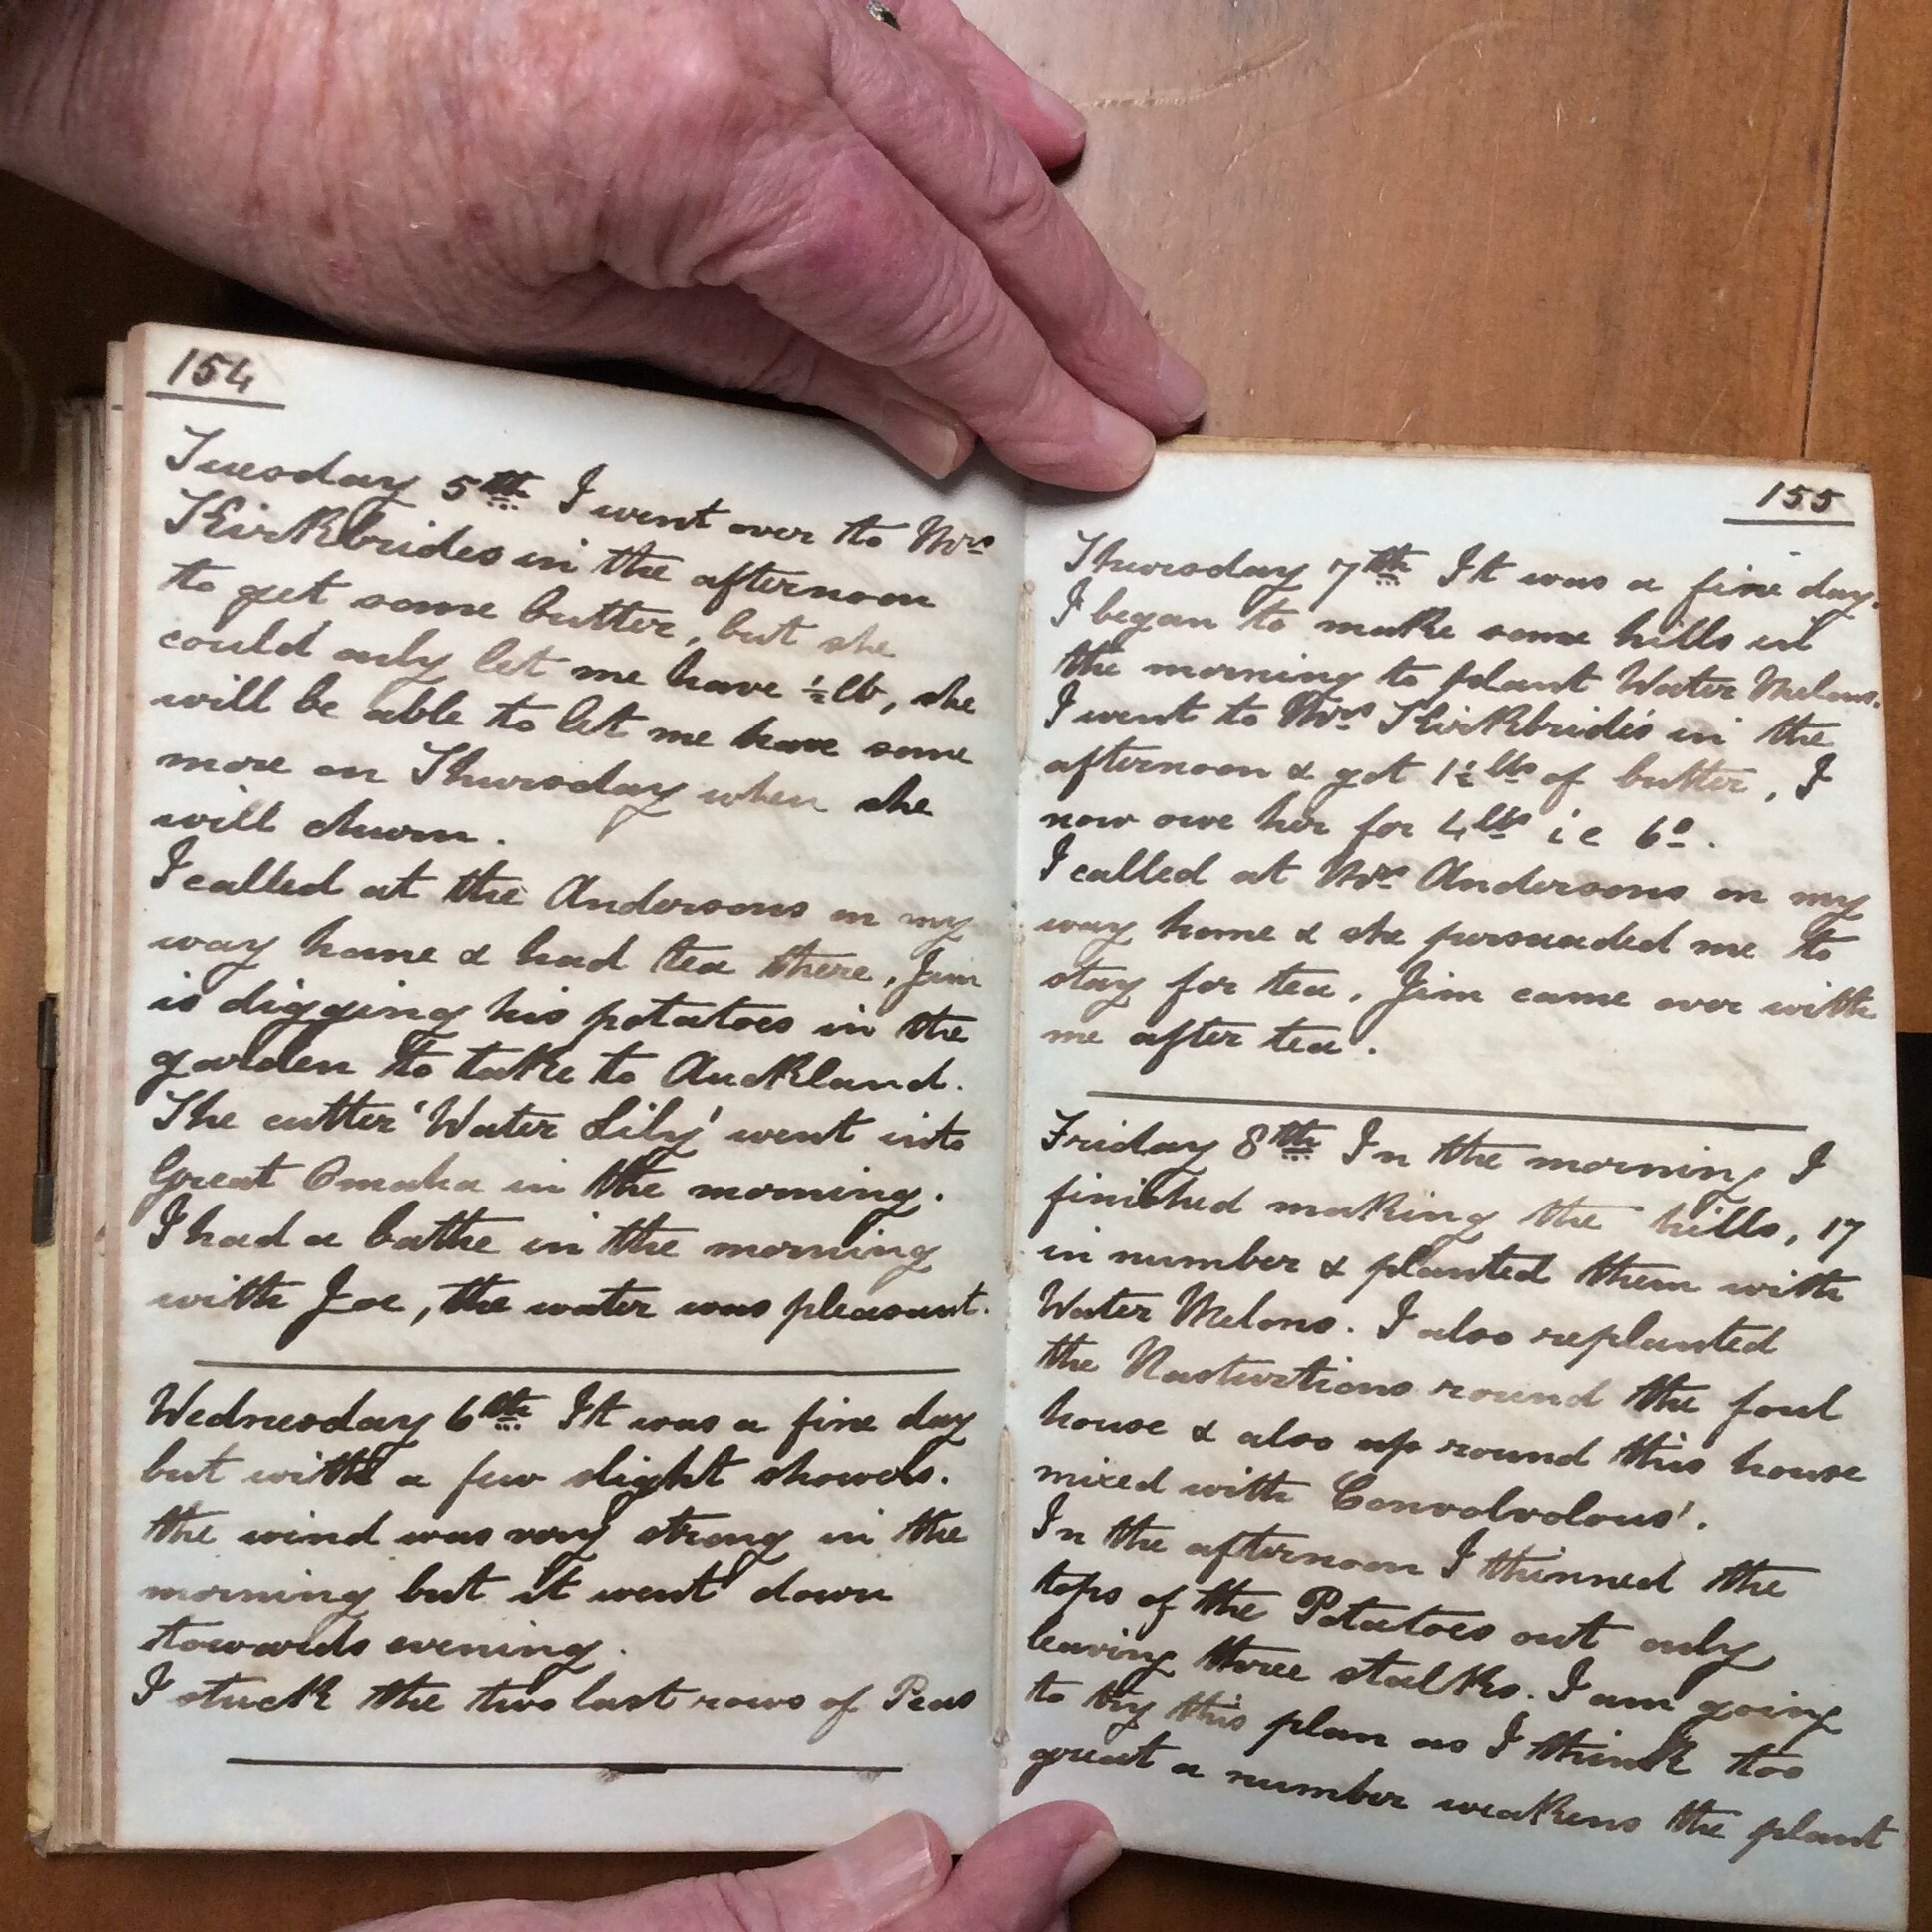 154
Tuesday 5th I went over to Mrs
Kirkbrides in the afternoon
to get some butter, but she
could only let me have ½ lb, she
will be able to let me have some
more on Thursday when she
will churn.
I called at the Andersons on my
way home & had tea there, Jim
is digging his potatoes in the
garden to take to Auckland.
The cutter 'Water Lily' went into
Great Omaha in the morning.
I had a bathe in the morning
with Joe, the water was pleasant.
Wednesday 6th It was a fine day
but with a few slight showers.
the wind was very strong in the
morning but it went down
towards evening.
I stuck the two last rows of Peas
155
Thursday 7th It was a fine day.
I began to make some hills in
the morning to plant Water Melons.
I went to Mrs Kirkbride's in the
afternoon & got 1½ lbs of butter, I
now owe her for 4 lbs i e 6s.
I called at Mrs Andersons on my
way home & she pursuaded me to
stay for tea, Jim came over with
me after tea.
Friday 8th In the morning I
finished making the hills, 17
in number & planted them with
Water Melons. I also replanted
the Nasturtions round the foul
house & also up round this house
mixed with Convolvolous'.
In the afternoon I thinned the
tops of the Potatoes out only
leaving three stalks. I am going
to try this plan as I think too
great a number weakens the plant